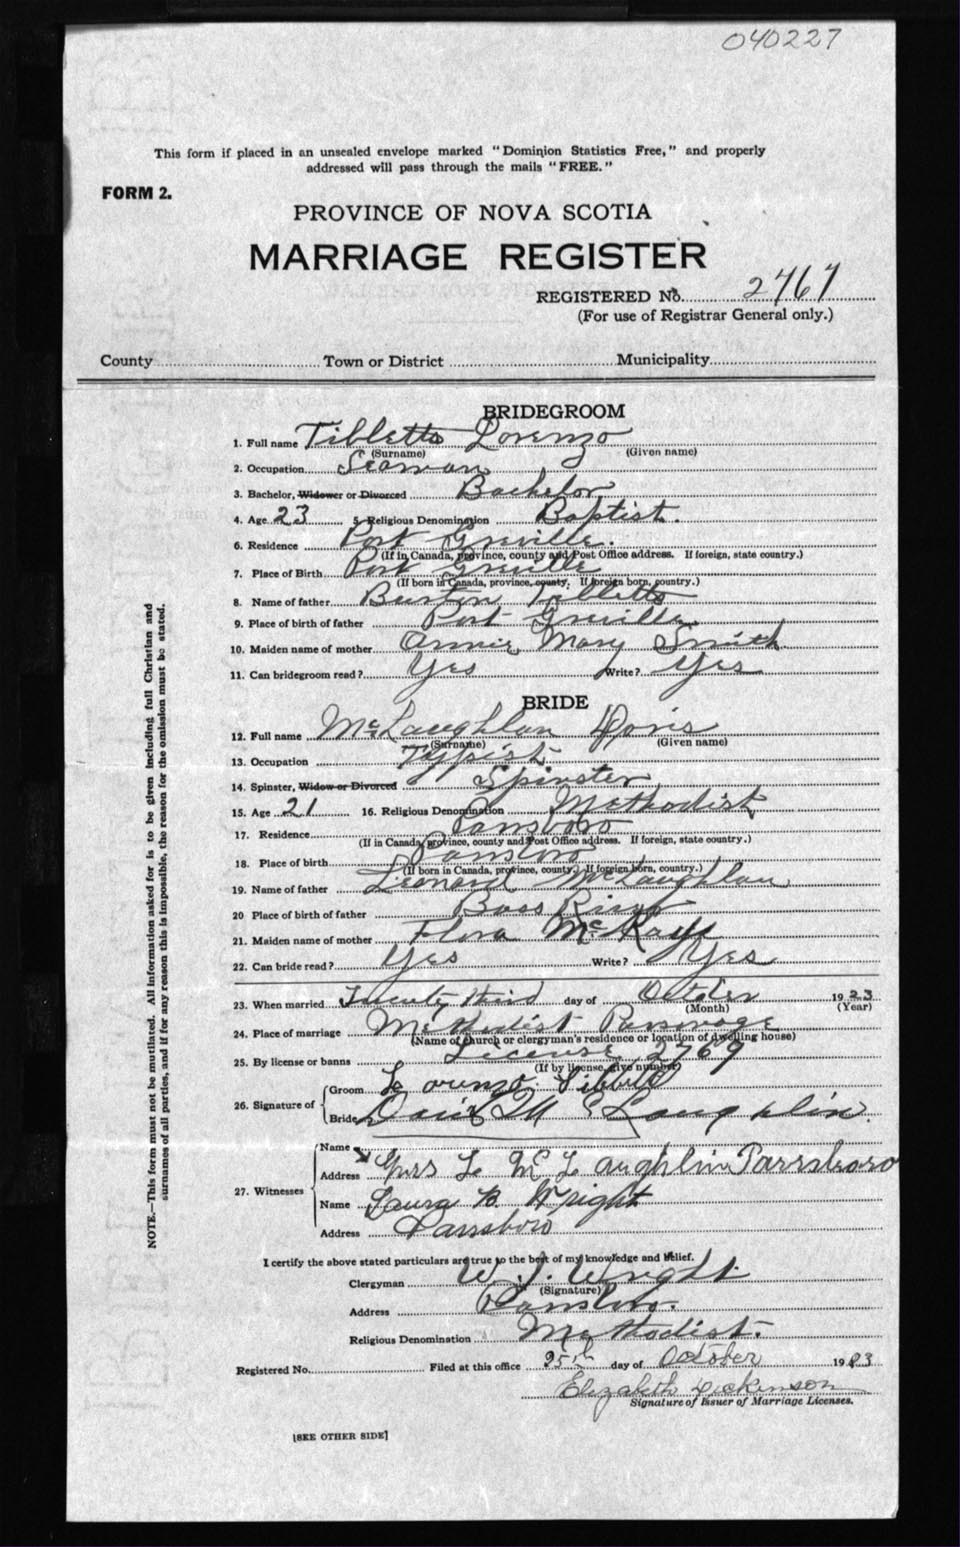 040227
This form if placed in an unsealed envelope marked "Dominion Statistics Free," and properly
addressed will pass through the mails "FREE."
FORM 2.
PROVINCE OF NOVA SCOTIA
MARRIAGE REGISTER
REGISTERED No. 2767
(For use of Registrar General only.)
County Town or District Municipality
BRIDEGROOM
1. Full name Tibbetts Lorenzo
(Surname) (Given name)
2. Occupation Seaman
3. Bachelor, Widower or Divorced Bachelor
4. Age 23 5. Religious Denomination Baptist.
6. Residence Port Greville.
(If in Canada, province, county and Post Office address. If foreign, state country.)
7. Place of Birth Port Greville
(If born in Canada, province, county. If foreign born, country.)
8. Name of father Burton Tibbetts
9. Place of birth of father Port Greville
10. Maiden name of mother Annie Mary Smith
11. Can bridegroom read? Yes Write? Yes
BRIDE
12. Full name McLaughlan Doris
(Surname) (Given name)
13. Occupation Typist.
14. Spinster, Widow or Divorced Spinster
15. Age 21 16. Religious Denomination Methodist
17. Residence Parrsboro
(If in Canada, province, county and Post Office address. If foreign, state country.)
18. Place of birth Parrsboro
(If born in Canada, province, county. If foreign born, country.)
19. Name of father Leonard McLaughlan
20 Place of birth of father Bass River
21. Maiden name of mother Flora McKay
22. Can bride read? Yes Write? Yes
23. When married Twenty third day of October 1923
(Month) (Year)
24. Place of marriage Methodist Parsonage
(Name of church or clergyman's residence or location of dwelling house)
25. By license or banns License 2769
(If by license, give number)
26. Signature of Groom Lorenzo Tibbetts
Bride Doris McLaughlin
27. Witnesses Name
Address Mrs L McLaughlin Parrsboro
Name Laura B. Wright
Address Parrsboro
I certify the above stated particulars are true to the best of my knowledge and belief.
Clergyman W. J. Wright.
(Signature)
Address Parrsboro.
Religious Denomination Methodist.
Registered No. Filed at this office 25th day of October 1923
Elizabeth Dickinson
Signature of Issuer of Marriage Licenses.
[SEE OTHER SIDE]
NOTE.—This form must not be mutilated. All information asked for is to be given including full Christian and
surnames of all parties, and if for any reason this is impossible, the reason for the omission must be stated.